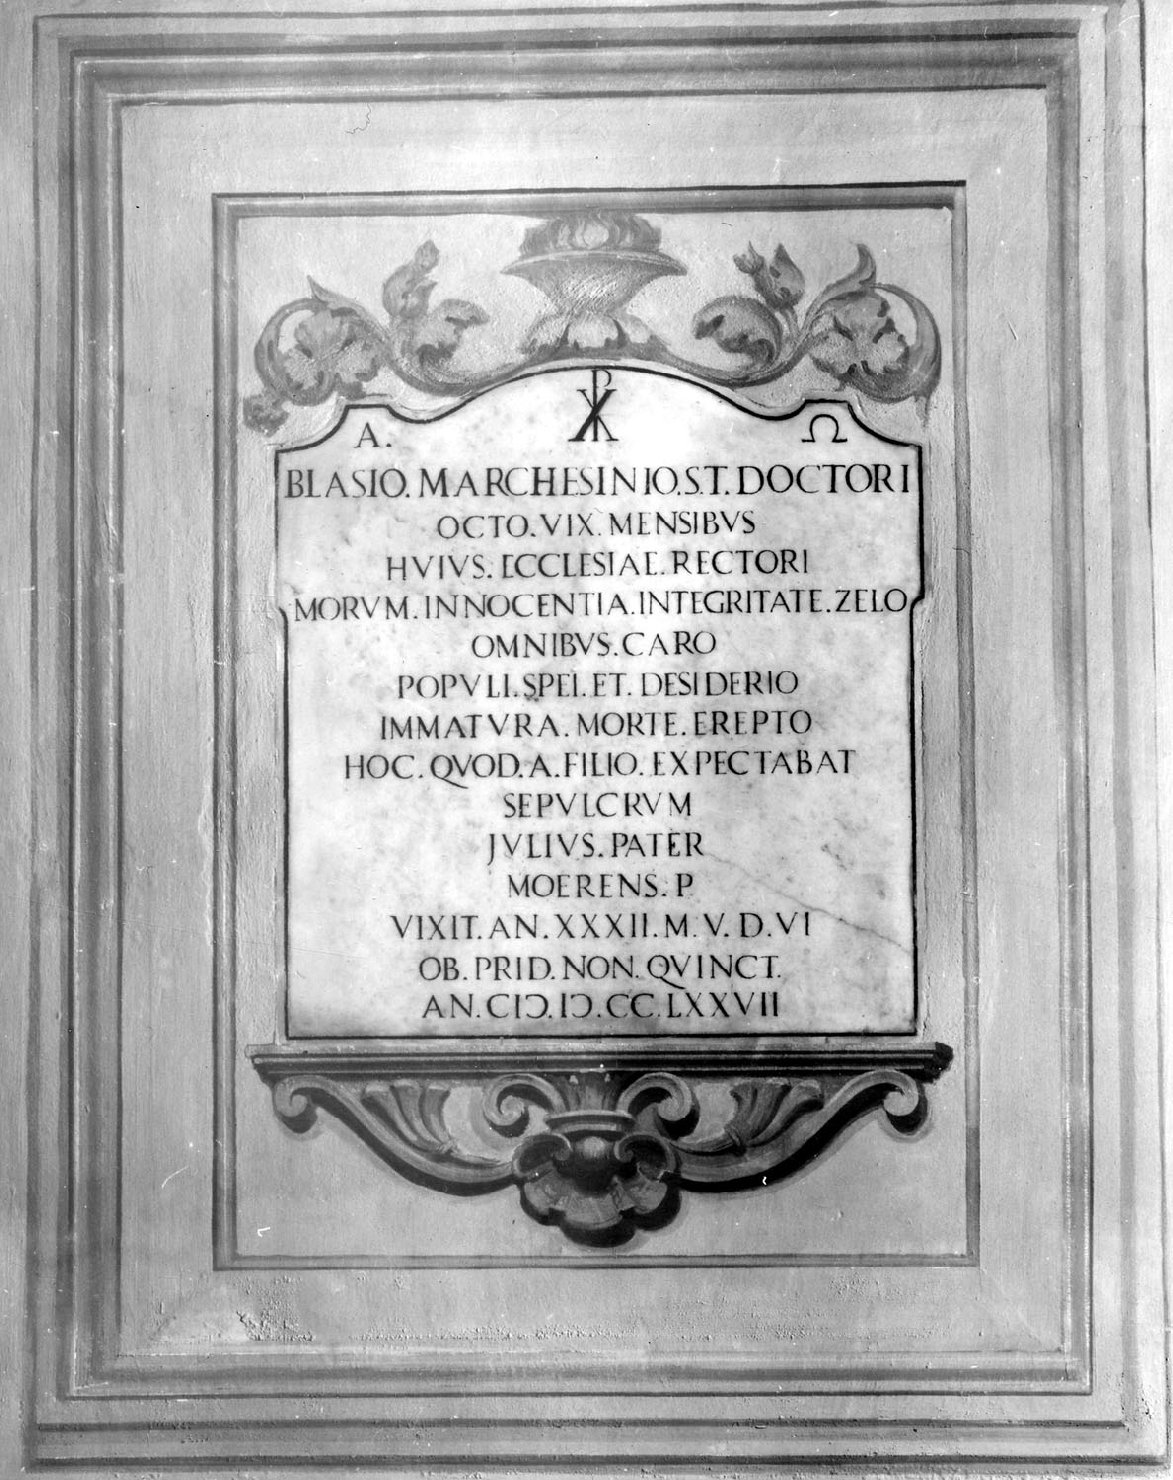 A. ☧ Ω
BLASIO.MARCHESINIO.S.T.DOCTORI
OCTO.VIX.MENSIBVS
HVIVS.ECCLESIAE.RECTORI
MORVM.INNOCENTIA.INTEGRITATE.ZELO
OMNIBVS.CARO
POPVLI.SPEI.ET.DESIDERIO
IMMATVRA.MORTE.EREPTO
HOC.QVOD.A.FILIO.EXPECTABAT
SEPVLCRVM
JVLIVS.PATER
MOERENS.P
VIXIT.AN.XXXII.M.V.D.VI
OB.PRID.NON.QVINCT.
AN.CIƆ.IƆ.CC.LXXVII